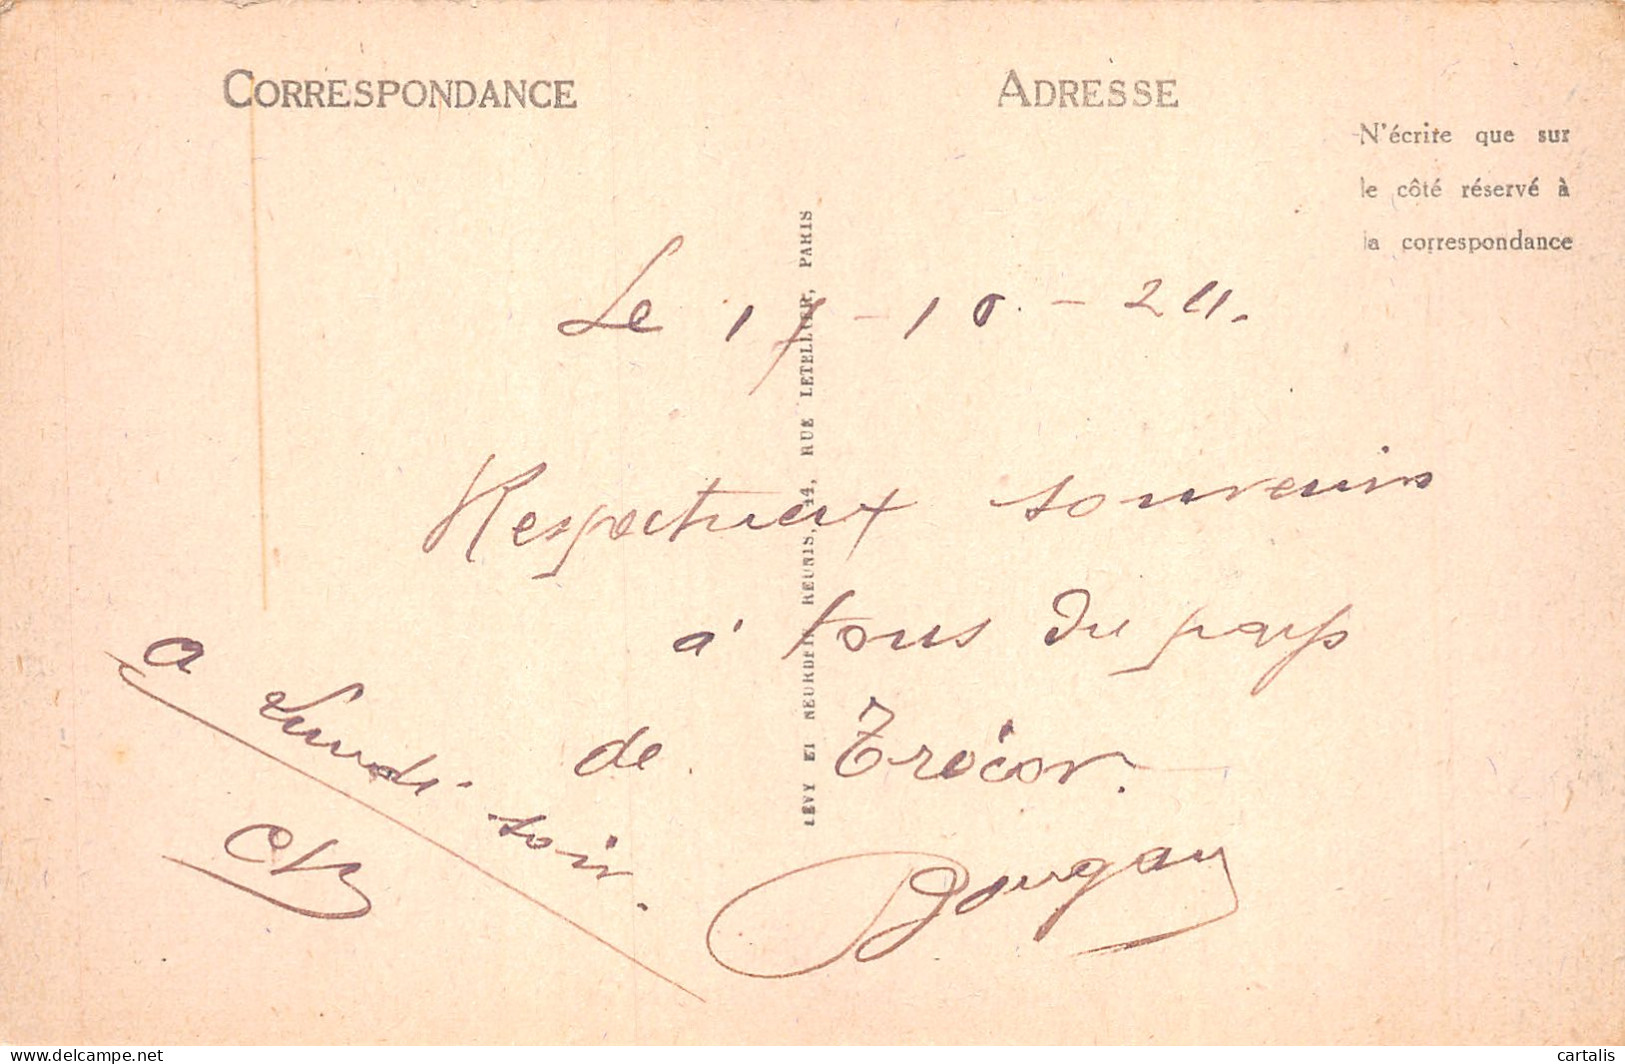 CORRESPONDANCE
ADRESSE
N'écrire que sur
le côté réservé à
la correspondance
LEVY ET NEURDEIN REUNIS, 44, RUE LETELLIER, PARIS
Le 17-10-24.
Respectueux souvenirs
à tous du pays
de Trécor.
a Lundi soir.
cartalis